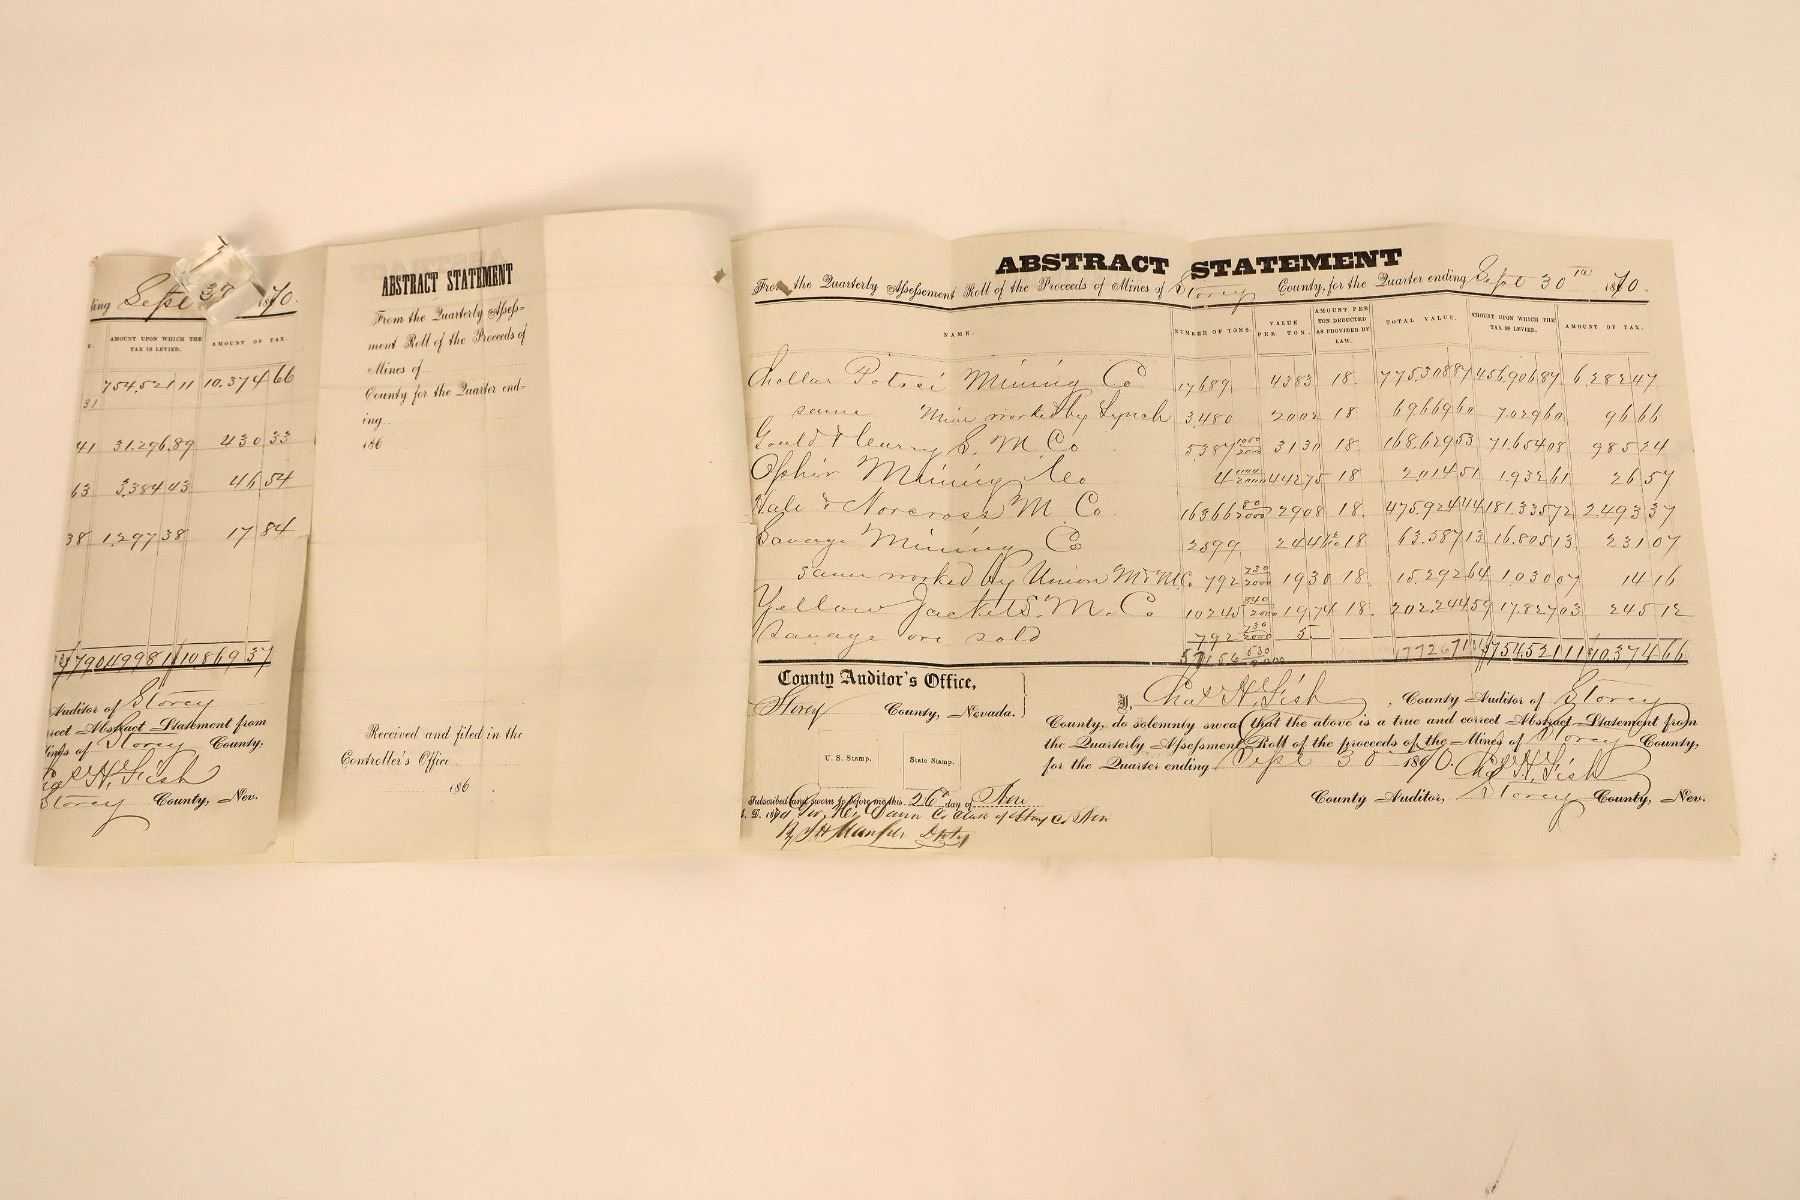 ding Sept 30 1870.
E.
AMOUNT UPON WHICH THE TAX IS LEVIED.
AMOUNT OF TAX
754,521 11 10,374 66
31
41 31,296.89 430 33
63 3,384 43 46 54
38 1,297 38 17 84
790499 81 10,869 37
Auditor of Storey
rect Abstract Statement from
Mines of Storey County,
Chas H. Fish
Storey County, Nev.
ABSTRACT STATEMENT
From the Quarterly Assess-
ment Roll of the Proceeds of
Mines of
County for the Quarter end-
ing
186
Received and filed in the
Controller's Office
186
ABSTRACT STATEMENT
From the Quarterly Assessment Roll of the Proceeds of Mines of Storey County, for the Quarter ending Sept 30th 1870.
NAME. NUMBER OF TONS. VALUE PER TON. AMOUNT PER TON DEDUCTED AS PROVIDED BY LAW. TOTAL VALUE. AMOUNT UPON WHICH THE TAX IS LEVIED. AMOUNT OF TAX.
Chollar Potosi Mining Co 17689 4383 18. 775.308 87 456,906 87 6282 47
same Mine worked by Lynch 3,480 2002 18 69669 60 7,029 60 96 66
Gould & Curry S. M Co 5,387 1000/2000 3130 18. 168,629 53 71,654 08 985 24
Ophir Mining Co 4 1100/2000 44275 18 2,014 51 1,932 61 26 57
Hale & Norcross M Co 16366 80/2000 2908 18. 475,924 44 181,335 72 2,493 37
Savage Mining Co 2599 2446 18 63,587 13 16,805 13 231 07
same worked by Union M & M Co 792 730/2000 1930 18. 15,292 64 1,030 07 14 16
Yellow Jacket S. M. Co 10245 840/2000 1974 18. 202,244 59 17,827 03 245 12
Savage ore sold 792 730/2000 5.
57,156 530/2000 177267131 754,521 11 10374 66
County Auditor's Office,
Storey County, Nevada.
U. S. Stamp. State Stamp.
Subscribed and sworn to before me this 26th day of Nov
A. D. 1870 Co Clerk of Storey Co Nev
Dpty
I, Chas H. Fish, County Auditor of Storey
County, do solemnly swear that the above is a true and correct Abstract Statement from
the Quarterly Assessment Roll of the proceeds of the Mines of Storey County,
for the Quarter ending Sept 30 1870. Chas H. Fish
County Auditor, Storey County, Nev.